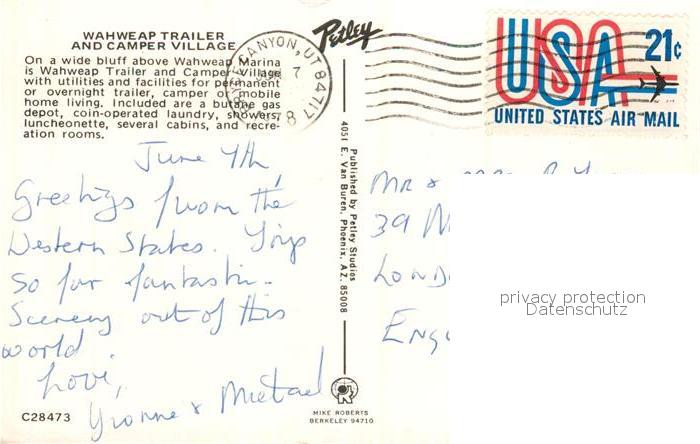 WAHWEAP TRAILER
AND CAMPER VILLAGE
On a wide bluff above Wahweap Marina
is Wahweap Trailer and Camper Village
with utilities and facilities for permanent
or overnight trailer, camper or mobile
home living. Included are a butane gas
depot, coin-operated laundry, showers,
luncheonette, several cabins, and recre-
ation rooms.
June 4th,
Greetings from the
Western States. Trip
so far fantastic.
Scenery out of this
world.
Love,
Yvonne & Michael
C28473
Petley
CANYON, UT 84717
7
Published by Petley Studios
4051 E. Van Buren, Phoenix, AZ. 85008
MIKE ROBERTS
BERKELEY 94710
USA 21¢
UNITED STATES AIR MAIL
Mr &
39
Lond
Eng
privacy protection
Datenschutz